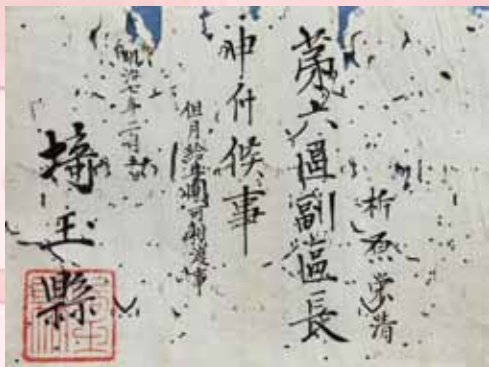 析原常清
第六區副區長
申付候事
但月給五圓可相渡事
明治七年二月
埼玉縣